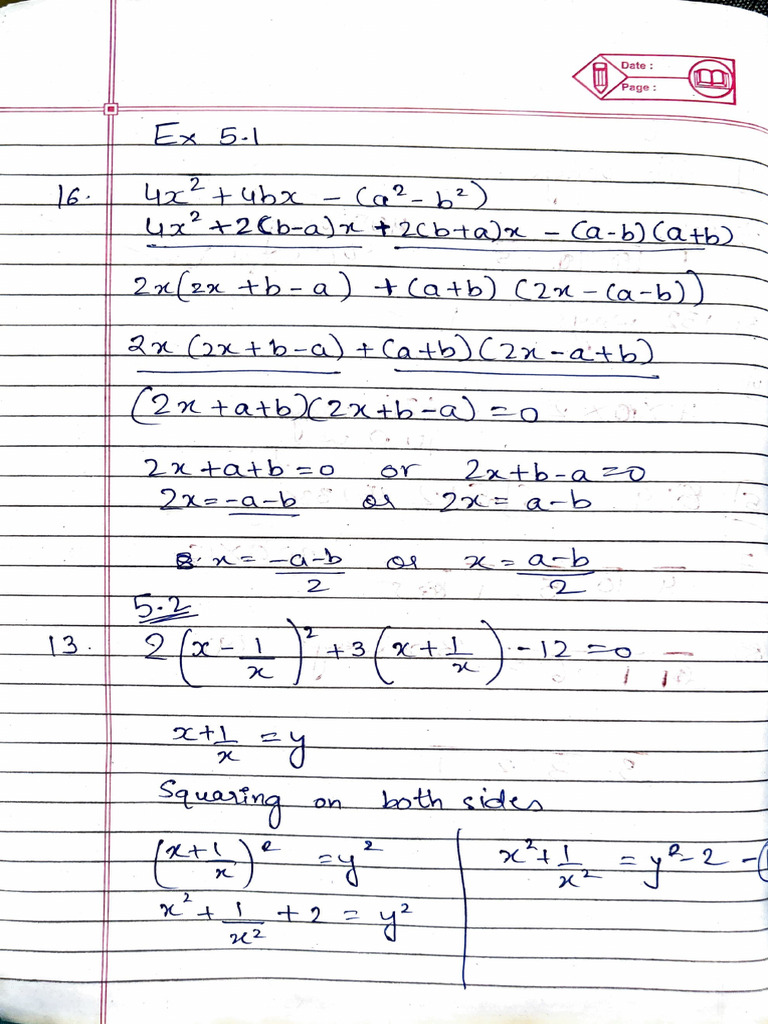 Date :
Page :
Ex 5.1
16. 4x² + 4bx - (a² - b²)
4x² + 2(b-a)x + 2(b+a)x - (a-b)(a+b)
2x(2x + b - a) + (a+b) (2x - (a-b))
2x (2x + b - a) + (a+b) (2x - a + b)
(2x + a + b)(2x + b - a) = 0
2x + a + b = 0 or 2x + b - a = 0
2x = -a - b or 2x = a - b
x = -a-b/2 or x = a-b/2
5.2
13. 2(x - 1/x)² + 3(x + 1/x) - 12 = 0
x + 1/x = y
Squaring on both sides
(x + 1/x)² = y²
x² + 1/x² + 2 = y²
x² + 1/x² = y² - 2 -